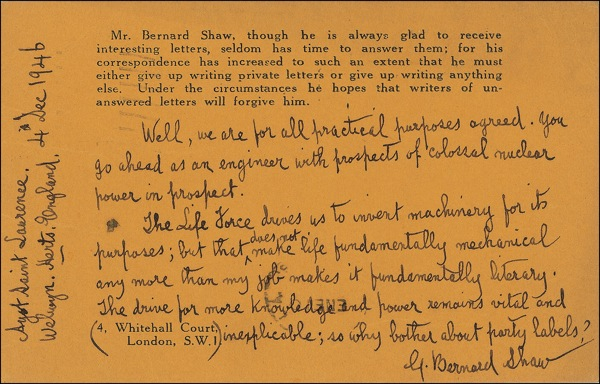 Mr. Bernard Shaw, though he is always glad to receive
interesting letters, seldom has time to answer them; for his
correspondence has increased to such an extent that he must
either give up writing private letters or give up writing anything
else. Under the circumstances he hopes that writers of un-
answered letters will forgive him.
Well, we are for all practical purposes agreed. You
go ahead as an engineer with prospects of colossal nuclear
power in prospect.
The Life Force drives us to invent machinery for its
purposes; but that does not make life fundamentally mechanical
any more than my job makes it fundamentally literary.
The drive for more knowledge and power remains vital and
inexplicable; so why bother about party labels?
G. Bernard Shaw
(4, Whitehall Court,
London, S.W.1.)
Ayot Saint Lawrence.
Welwyn. Herts. England. 4th Dec 1946